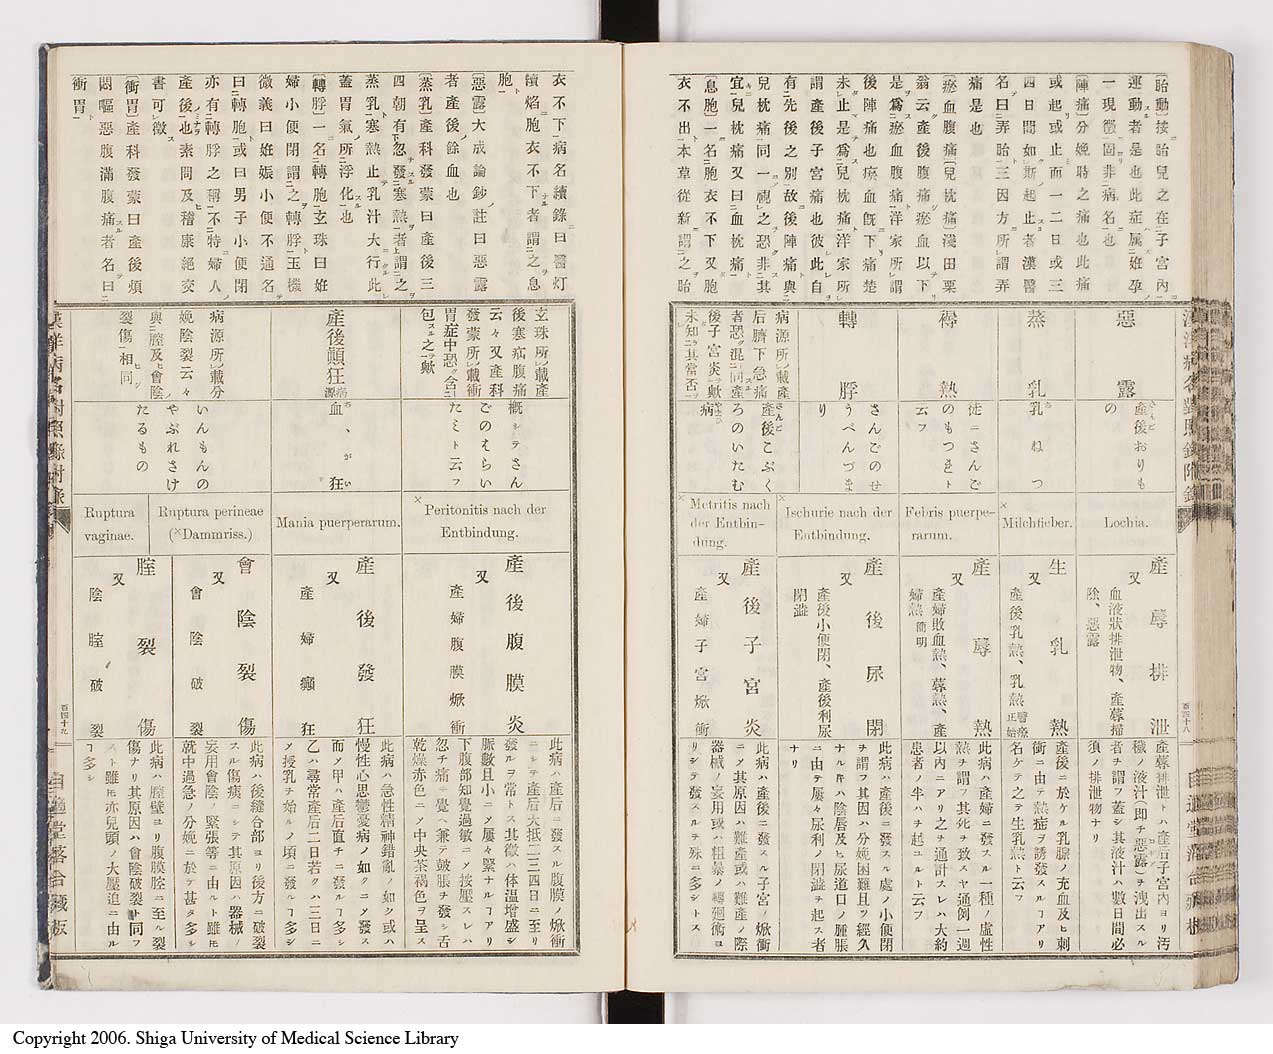 〔胎動〕按胎兒之在子宮內
運動者是也此症屬姙孕
一現徵固非病名也
〔陣痛〕分娩時之痛也此痛
或起或止而一二日或三
四日間如斯起止者漢醫
名曰弄胎三因方所謂弄
痛是也
〔瘀血腹痛〕〔兒枕痛〕淺田栗
翁云產後腹痛瘀血以下
是爲瘀血腹痛洋家所謂
後陣痛也瘀血既下痛楚
未止是爲兒枕痛洋家所
謂產後子宮痛也彼此自
有先後之別故後陣痛與
兒枕痛同一視之恐非其
宜兒枕痛又曰血枕痛
〔息胞〕一名胞衣不下又胞
衣不出本草從新謂之胎
惡露
產後おりも
の
Lochia.
產蓐排泄
又
血液狀排泄物、產蓐掃
除、惡露
產蓐排泄トハ產后子宮內ヨリ汚
穢ノ液汁(即チ惡露)ヲ洩出スル
者ヲ謂フ蓋シ其液汁ハ數日間必
須ノ排泄物ナリ
蒸乳
乳ねつ
×Milchfieber.
生乳熱
又
產後乳熱、乳熱
產後ニ於ケル乳腺ノ充血及ヒ刺
衝ニ由テ熱症ヲ誘發スルヿアリ
名ケテ之テ生乳熱ト云フ
褥熱
徒ニさんご
のもつきト
云フ
Febris puerpe-
rarum.
產蓐熱
又
產婦敗血熱、蓐熱、產
婦熱
此病ハ產婦ニ發スル一種ノ虛性
熱ヲ謂フ其死ヲ致スヤ通例一週
以內ニアリ之ヲ通計スレハ大約
患者ノ半ハヲ起ユルト云フ
轉脬
さんごのせ
うべんづま
り
×Ischurie nach der
Entbindung.
產後尿閉
又
產後小便閉、產後利尿
閉澁
此病ハ產後ニ發スル處ノ小便閉
ヲ謂フ其因ハ分娩困難且ツ經久
ナルキハ陰唇及ヒ尿道口ノ腫脹
ニ由テ屢々尿利ノ閉澁ヲ起ス者
ナリ
病源所載產
后臍下急痛
者恐ハ混同產
後子宮炎歟
未知其當否
產後こぶく
ろのいたむ
病
×Metritis nach
der Entbin-
dung.
產後子宮炎
又
產婦子宮焮衝
此病ハ產後ニ發スル子宮ノ焮衝
ニメ其原因ハ難產或ハ難產ノ際
器械ノ妄用或ハ粗暴ノ轉廻術ヨ
リシテ發スルヲ殊ニ多シトス
百四十八
衣不下病名續錄曰醫灯
續焰胞衣不下者謂之息
胞
〔惡露〕大成論鈔註曰惡露
者產後餘血也
〔蒸乳〕產科發蒙曰產後三
四朝有忽發寒熱者謂之
蒸乳寒熱止乳汁大行此
蓋胃氣所浮化也
〔轉脬〕一名轉胞玄珠曰姙
婦小便閉謂之轉脬玉機
微義曰姙娠小便不通名
曰轉胞或曰男子小便閉
亦有轉脬之稱不特婦人
產後也素問及嵇康絶交
書可徵
〔衝胃〕產科發蒙曰產後煩
悶嘔惡腹滿腹痛者名曰
衝胃
玄珠所載產
後塞疝腹痛
云々又產科
發蒙所載衝
胃症中恐ハ含
包スル之歟
概シテさん
ごのえらい
たミト云フ
×Peritonitis nach der
Entbindung.
產後腹膜炎
又
產婦腹膜焮衝
此病ハ產后ニ發スル腹膜ノ焮衝
ニシテ產后大抵二三四日ニ至リ
發ルヲ常トス其徵ハ体温增盛シ
脈數且小ニメ屢々緊ナルヿアリ
下腹部知覺過敏ニメ按壓スレハ
忽チ痛ヲ覺ヘ兼テ皷脹ヲ發シ舌
乾燥赤色ニメ中央茶褐色ヲ呈ス
產後顚狂
病源
血、が狂
Mania puerperarum.
產後發狂
又
產婦癲狂
此病ハ急性精神錯亂ノ如シ或ハ
慢性心思鬱憂病ノ如クニメ發ス
而メ甲ハ產后直チニ發ルヿ多シ
乙ハ尋常產后二日若クハ三日ニ
メ授乳ヲ始ルノ頃ニ發ルヿ多シ
病源所載分
娩陰裂云々
與膣及ヒ會陰ノ
裂傷相同シ
いんもんの
やぶれさけ
たるもの
Ruptura perineae
(×Dammriss.)
會陰裂傷
又
會陰破裂
此病ハ後縫合部ヨリ後方ニ破裂
スル傷痍ニシテ其原因ハ器械ノ
妄用會陰ノ緊張等ニ由ルト雖モ
就中過急ノ分娩ニ於テ甚タ多シ
Ruptura
vaginae.
腟裂傷
又
陰腟破裂
此病ハ腟壁ヨリ腹膜腔ニ至ル裂
傷ナリ其原因ハ會陰破裂ト同フ
スト雖モ亦兒頭ノ大壓迫ニ由ル
ヿ多シ
百四十九
Copyright 2006. Shiga University of Medical Science Library